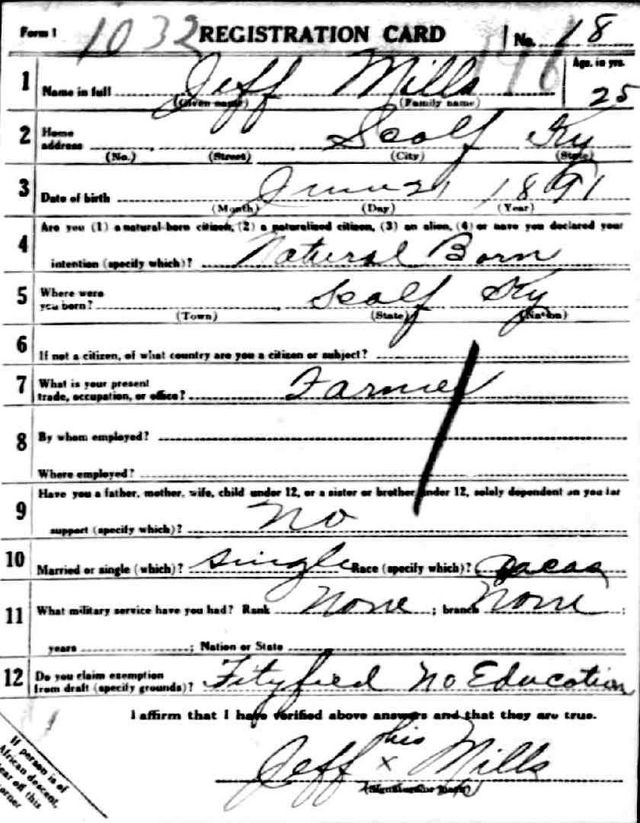 Form 1 1032 REGISTRATION CARD No. 18
196
1 Name in full Jeff Mills Age, in yrs. 25
(Given name) (Family name)
2 Home address Scalf Ky
(No.) (Street) (City) (State)
3 Date of birth June 21 1891
(Month) (Day) (Year)
4 Are you (1) a natural-born citizen, (2) a naturalized citizen, (3) an alien, (4) or have you declared your
intention (specify which)? Natural Born
5 Where were you born? Scalf Ky
(Town) (State) (Nation)
6 If not a citizen, of what country are you a citizen or subject?
7 What is your present trade, occupation, or office? Farmer
8 By whom employed?
Where employed?
9 Have you a father, mother, wife, child under 12, or a sister or brother under 12, solely dependent on you for
support (specify which)? No
10 Married or single (which)? Single Race (specify which)?
11 What military service have you had? Rank None ; branch None ;
years ; Nation or State
12 Do you claim exemption from draft (specify grounds)? No Education
I affirm that I have verified above answers and that they are true.
Jeff his x Mills
(Signature or mark)
If person is of
African descent,
tear off this
corner